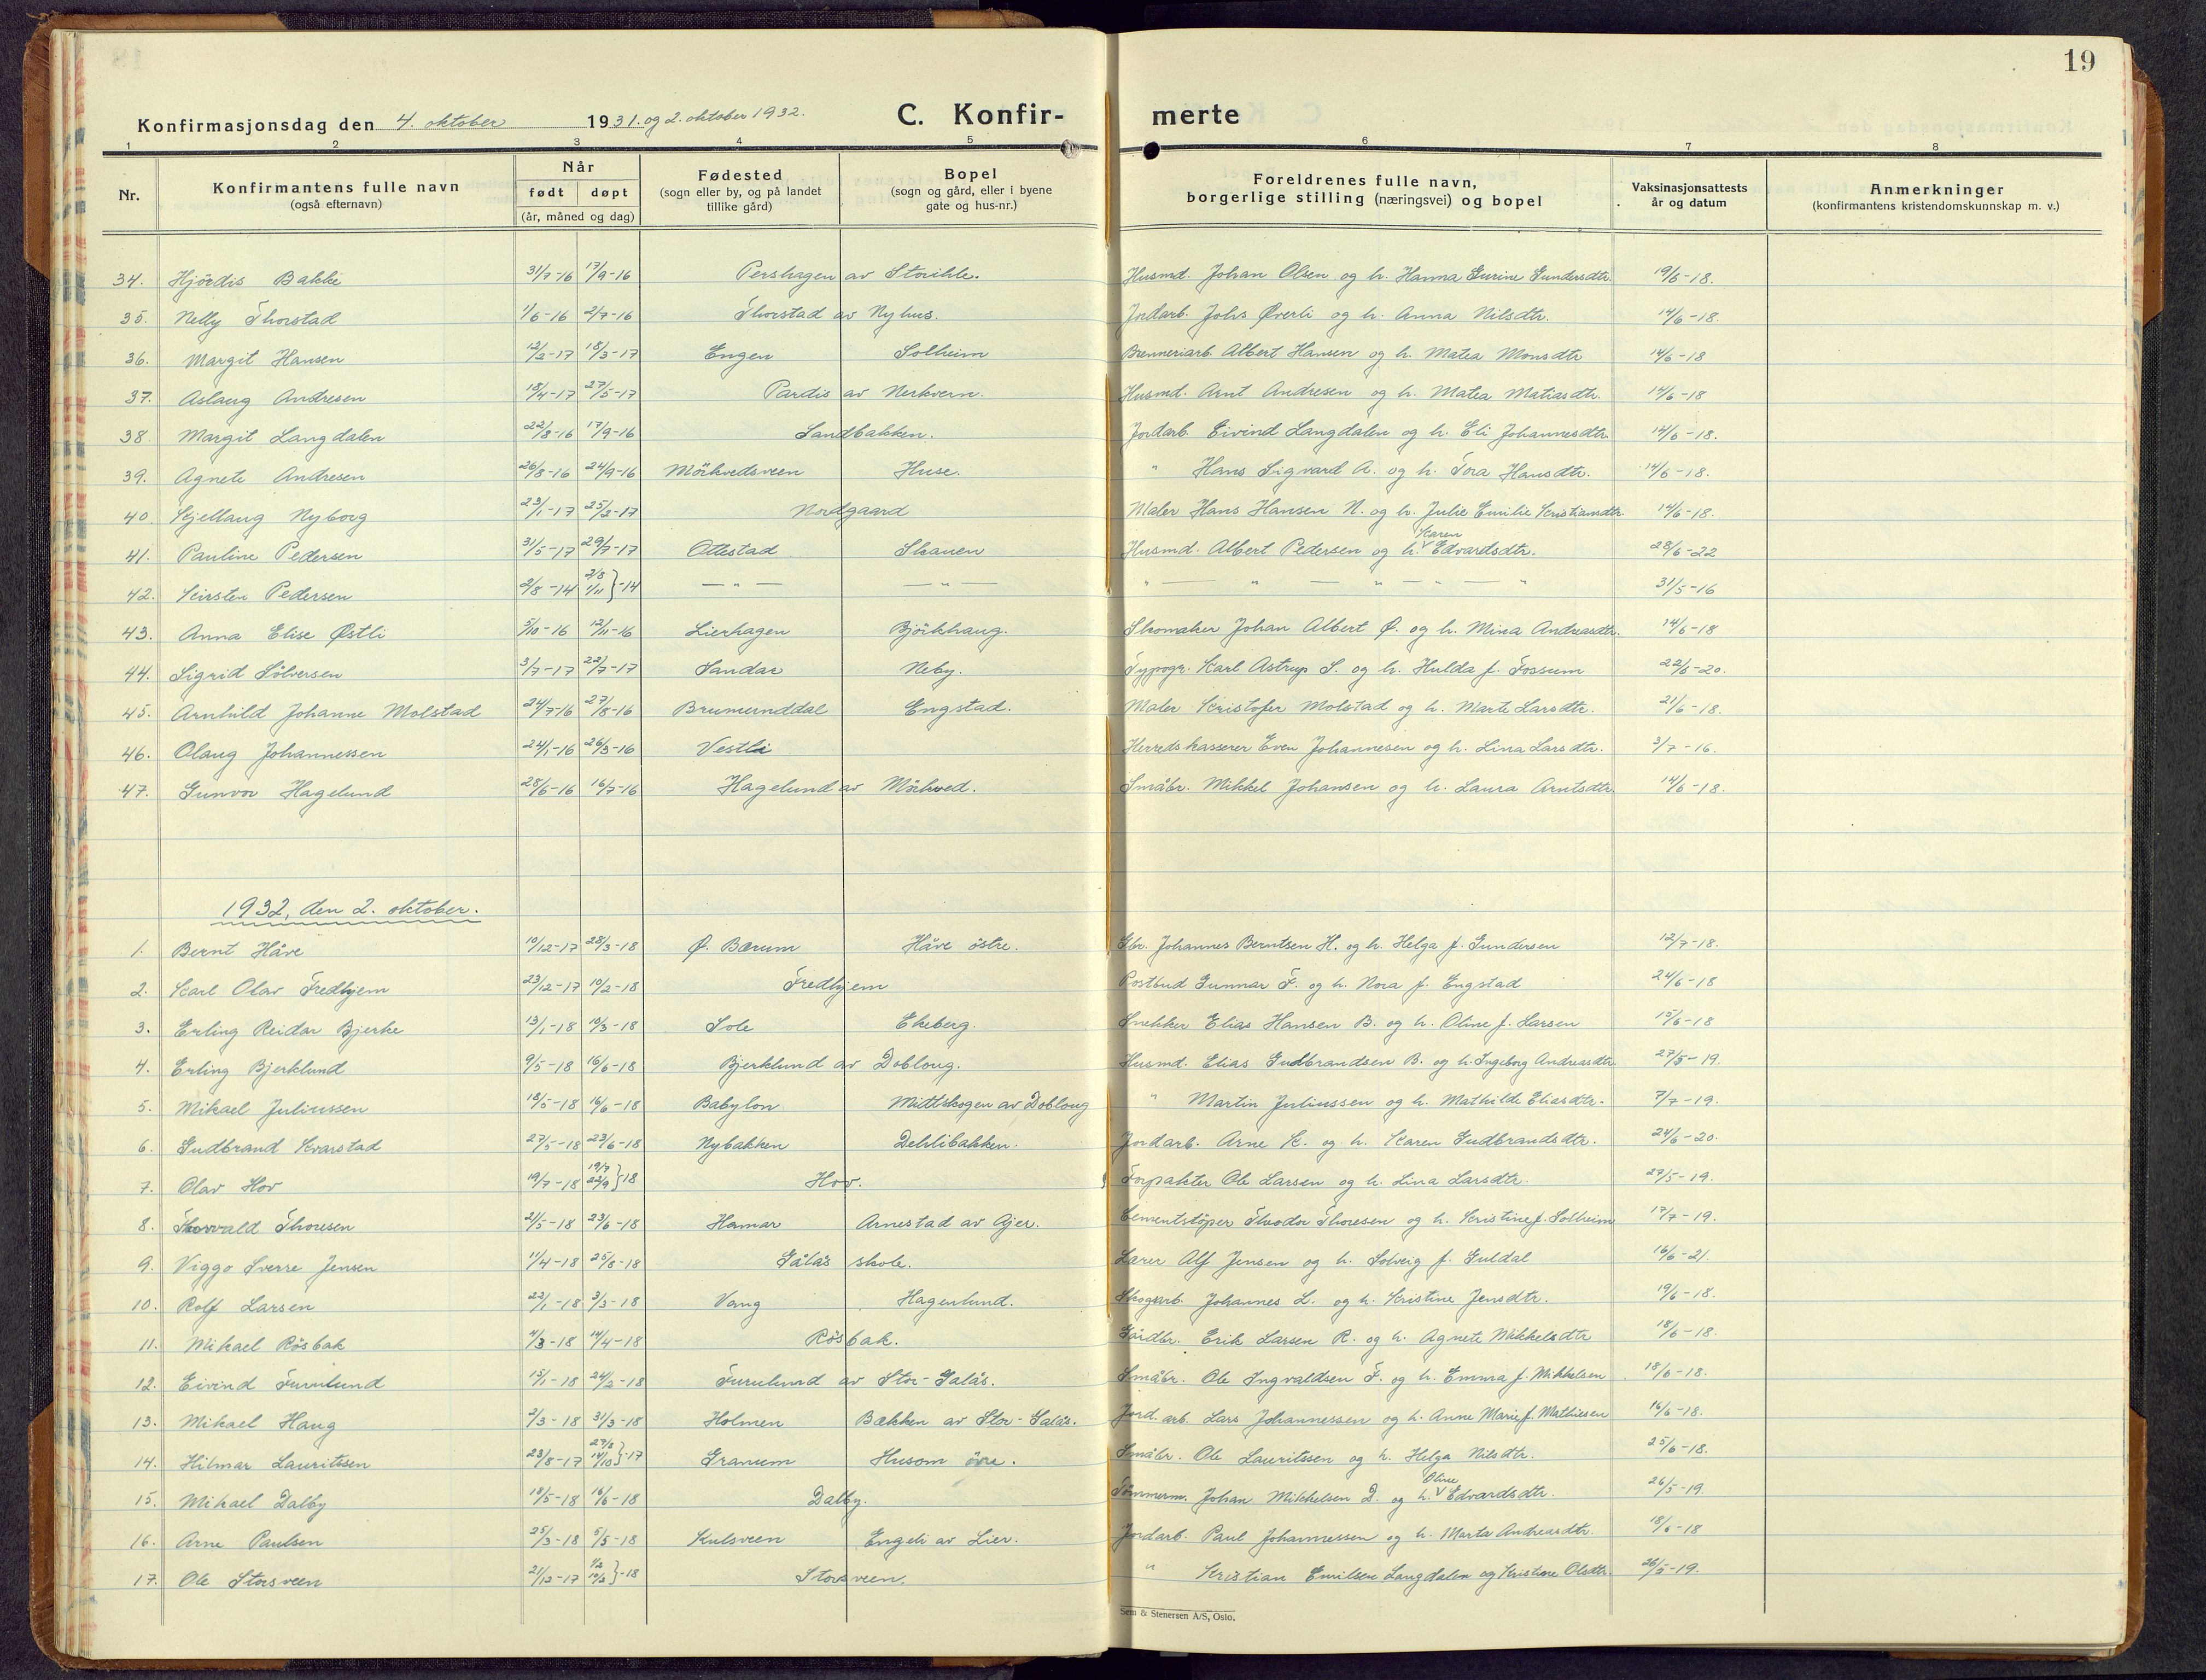 19
Konfirmasjonsdag den 4. oktober 1931. og 2. oktober 1932. C. Konfir- merte
1 2 3 4 5 6 7 8
Nr. Konfirmantens fulle navn (også efternavn) Når født døpt (år, måned og dag) Fødested (sogn eller by, og på landet tillike gård) Bopel (sogn og gård, eller i byene gate og hus-nr.) Foreldrenes fulle navn, borgerlige stilling (næringsvei) og bopel Vaksinasjonsattests år og datum Anmerkninger (konfirmantens kristendomskunnskap m. v.)
34. Hjördis Bakke 31/7-16 17/9-16 Pershagen av Storihle. Husmd. Johan Olsen og h. Hanna Gurine Gundersdtr. 19/6-18.
35. Nelly Thorstad 1/6-16 2/7-16 Thorstad av Nyhus. Jordarb. Johs Øverli og h. Anna Nilsdtr. 14/6-18.
36. Margit Hansen 12/2-17 18/3-17 Engen Solheim Brenneriarb. Albert Hansen og h. Matea Monsdtr 14/6-18
37. Aslaug Andresen 18/4-17 27/5-17 Pardis av Nerkvern. Husmd. Arnt Andresen og h. Matea Matiasdtr. 14/6-18
38. Margit Langdalen 22/8-16 17/9-16 Sandbakken. Jordarb. Eivind Langdalen og h. Eli Johannesdtr. 14/6-18.
39. Agnete Andresen 26/8-16 24/9-16 Mörkvedsveen Huse. " Hans Sigvard A. og h. Tora Hansdtr. 14/6-18.
40. Kjellaug Nyborg 23/1-17 25/2-17 Nordgaard Maler Hans Hansen N. og h. Julie Emilie Kristiansdtr. 14/6-18.
41. Pauline Pedersen 31/5-17 29/7-17 Ottestad Skauen Husmd. Albert Pedersen og h. Karen Edvardsdtr. 28/6-22
42. Kirsten Pedersen 2/8-14 2/8 1/11 }-14 — " — — " — " — " — " — " — " 31/5-16
43. Anna Elise Østli 5/10-16 12/11-16 Lierhagen Björkhaug. Skomaker Johan Albert Ø. og h. Mina Andreasdtr. 14/6-18
44. Sigrid Sölversen 3/7-17 22/7-17 Sandar Neby. Typogr. Karl Astrup S. og h. Hulda f. Fossum 22/6-20.
45. Arnhild Johanne Molstad 24/7-16 27/8-16 Brumunddal Engstad. Maler Kristofer Molstad og h. Marte Larsdtr. 21/6-18.
46. Olaug Johannessen 24/1-16 26/3-16 Vestli Herredskasserer Even Johannesen og h. Lina Larsdtr. 3/7-16.
47. Gunvor Hagelund 28/6-16 16/7-16 Hagelund av Mörkved. Småbr. Mikkel Johansen og h. Laura Arntsdtr. 14/6-18.
1932, den 2. oktober.
1. Bernt Håve 10/12-17 28/3-18 Ø. Bærum Håve östre. Gbr. Johannes Berntsen H. og h. Helga f. Gundersen 12/7-18.
2. Karl Olav Fredhjem 23/12-17 10/2-18 Fredhjem Postbud Gunnar F. og h. Nora f. Engstad 24/6-18
3. Erling Reidar Bjerke 13/1-18 10/3-18 Sole Ekeberg. Snekker Elias Hansen B. og h. Oline f. Larsen 15/6-18
4. Erling Bjerklund 9/5-18 16/6-18 Bjerklund av Dobloug. Husmd. Elias Gudbrandsen B. og h. Ingeborg Andreasdtr. 27/5-19.
5. Mikael Juliussen 18/5-18 16/6-18 Babylon Midtskogen av Dobloug " Martin Juliussen og h. Mathilde Eliasdtr. 7/7-19.
6. Gudbrand Kvarstad 27/5-18 23/6-18 Nybakken Dehlibakken. Jordarb. Arne K. og h. Karen Gudbrandsdtr. 24/6-20.
7. Olav Hov 19/7-18 19/7 22/9 }-18 Hov. Forpakter Ole Larsen og h. Lina Larsdtr. 27/5-19.
8. Thorvald Thoresen 21/5-18 23/6-18 Hamar Arnestad av Ajer. Cementstöper Theodor Thoresen og h. Kristine f. Solheim 17/7-19.
9. Viggo Sverre Jensen 11/4-18 25/8-18 Gålås skole. Lærer Alf Jensen og h. Solveig f. Guldal 16/6-21.
10. Rolf Larsen 22/1-18 3/3-18 Vang Hagenlund. Skogarb. Johannes L. og h. Kristine Jensdtr. 19/6-18.
11. Mikael Rösbak 4/3-18 14/4-18 Rösbak. Gårdbr. Erik Larsen R. og h. Agnete Mikkelsdtr 18/6-18.
12. Eivind Furulund 15/1-18 24/2-18 Furulund av Stor-Galås. Småbr. Ole Ingvaldsen F. og h. Emma f. Mikkelsen 18/6-18.
13. Mikael Haug 2/3-18 31/3-18 Holmen Bækken av Stor-Galås. Jord.arb. Lars Johannessen og h. Anne Marie f. Mathiesen 16/6-18.
14. Hilmar Lauritssen 23/8-17 27/8 14/10 }-17 Granum Husom övre. Småbr. Ole Lauritssen og h. Helga Nilsdtr. 25/6-18.
15. Mikael Dalby 18/5-18 16/6-18 Dalby. Tömmerm. Johan Mikkelsen D. og h. Oline Edvardsdtr. 26/5-19.
16. Arne Paulsen 25/3-18 5/5-18 Kulsveen Engeli av Lier. Jordarb. Paul Johannessen og h. Marta Andreasdtr. 18/6-18
17. Ole Storsveen 21/12-17 1/2 10/2 }-18 Storsveen. " Kristian Emilsen Langdalen og Kristine Olsdtr. 26/5-19.
Sem & Stenersen A/S, Oslo.